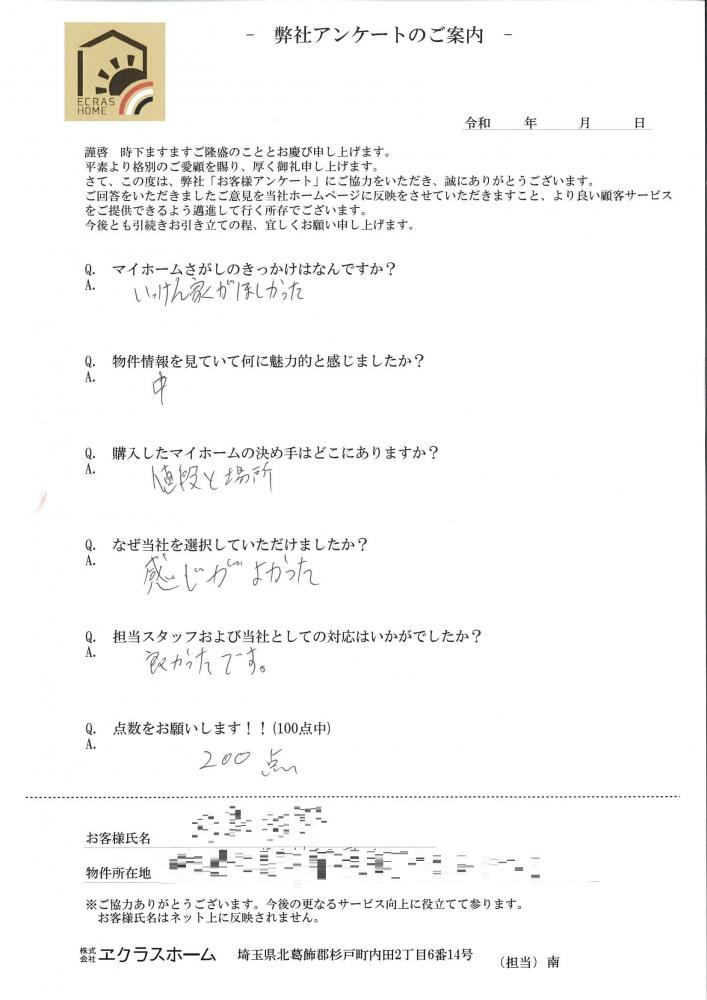 - 弊社アンケートのご案内 -
ECRAS
HOME
令和 年 月 日
謹啓 時下ますますご隆盛のこととお慶び申し上げます。
平素より格別のご愛顧を賜り、厚く御礼申し上げます。
さて、この度は、弊社「お客様アンケート」にご協力をいただき、誠にありがとうございます。
ご回答をいただきましたご意見を当社ホームページに反映をさせていただきますこと、より良い顧客サービス
をご提供できるよう邁進して行く所存でございます。
今後とも引続きお引き立ての程、宜しくお願い申し上げます。
Q. マイホームさがしのきっかけはなんですか？
A. いっけん家がほしかった
Q. 物件情報を見ていて何に魅力的と感じましたか？
A. 中
Q. 購入したマイホームの決め手はどこにありますか？
A. 値段と場所
Q. なぜ当社を選択していただけましたか？
A. 感じがよかった
Q. 担当スタッフおよび当社としての対応はいかがでしたか？
A. 良かったです。
Q. 点数をお願いします！！(100点中)
A. 200点
お客様氏名
物件所在地
※ご協力ありがとうございます。今後の更なるサービス向上に役立てて参ります。
お客様氏名はネット上に反映されません。
株式会社 ヱクラスホーム 埼玉県北葛飾郡杉戸町内田2丁目6番14号 （担当）南